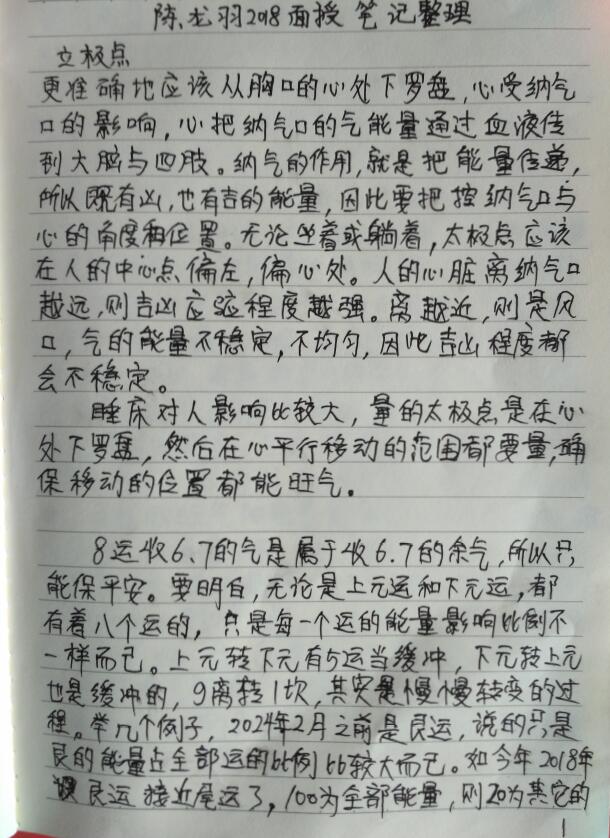 陈龙羽2018面授笔记整理
立极点
更准确地应该从胸口的心处下罗盘,心受纳气
口的影响,心把纳气口的气能量通过血液传
到大脑与四肢。纳气的作用,就是把能量传递,
所以既有凶,也有吉的能量,因此要把控纳气口与
心的角度和位置。无论坐着或躺着,太极点应该
在人的中心点偏左,偏心处。人的心脏离纳气口
越远,则吉凶应验程度越强。离越近,则是风
口,气的能量不稳定,不均匀,因此吉凶程度都
会不稳定。
睡床对人影响比较大,量的太极点是在心
处下罗盘,然后在心平行移动的范围都要量,确
保移动的位置都能旺气。
8运收6.7的气是属于收6.7的余气,所以只
能保平安。要明白,无论是上元运和下元运,都
有着八个运的,只是每一个运的能量影响比例不
一样而已。上元转下元有5运当缓冲,下元转上元
也是缓冲的,9离转1坎,其实是慢慢转变的过
程。举几个例子,2024年2月之前是艮运,说的只是
艮的能量占全部运的比例比较大而已。如今年2018年
艮运接近尾运了,100为全部能量,则20为其它的
1